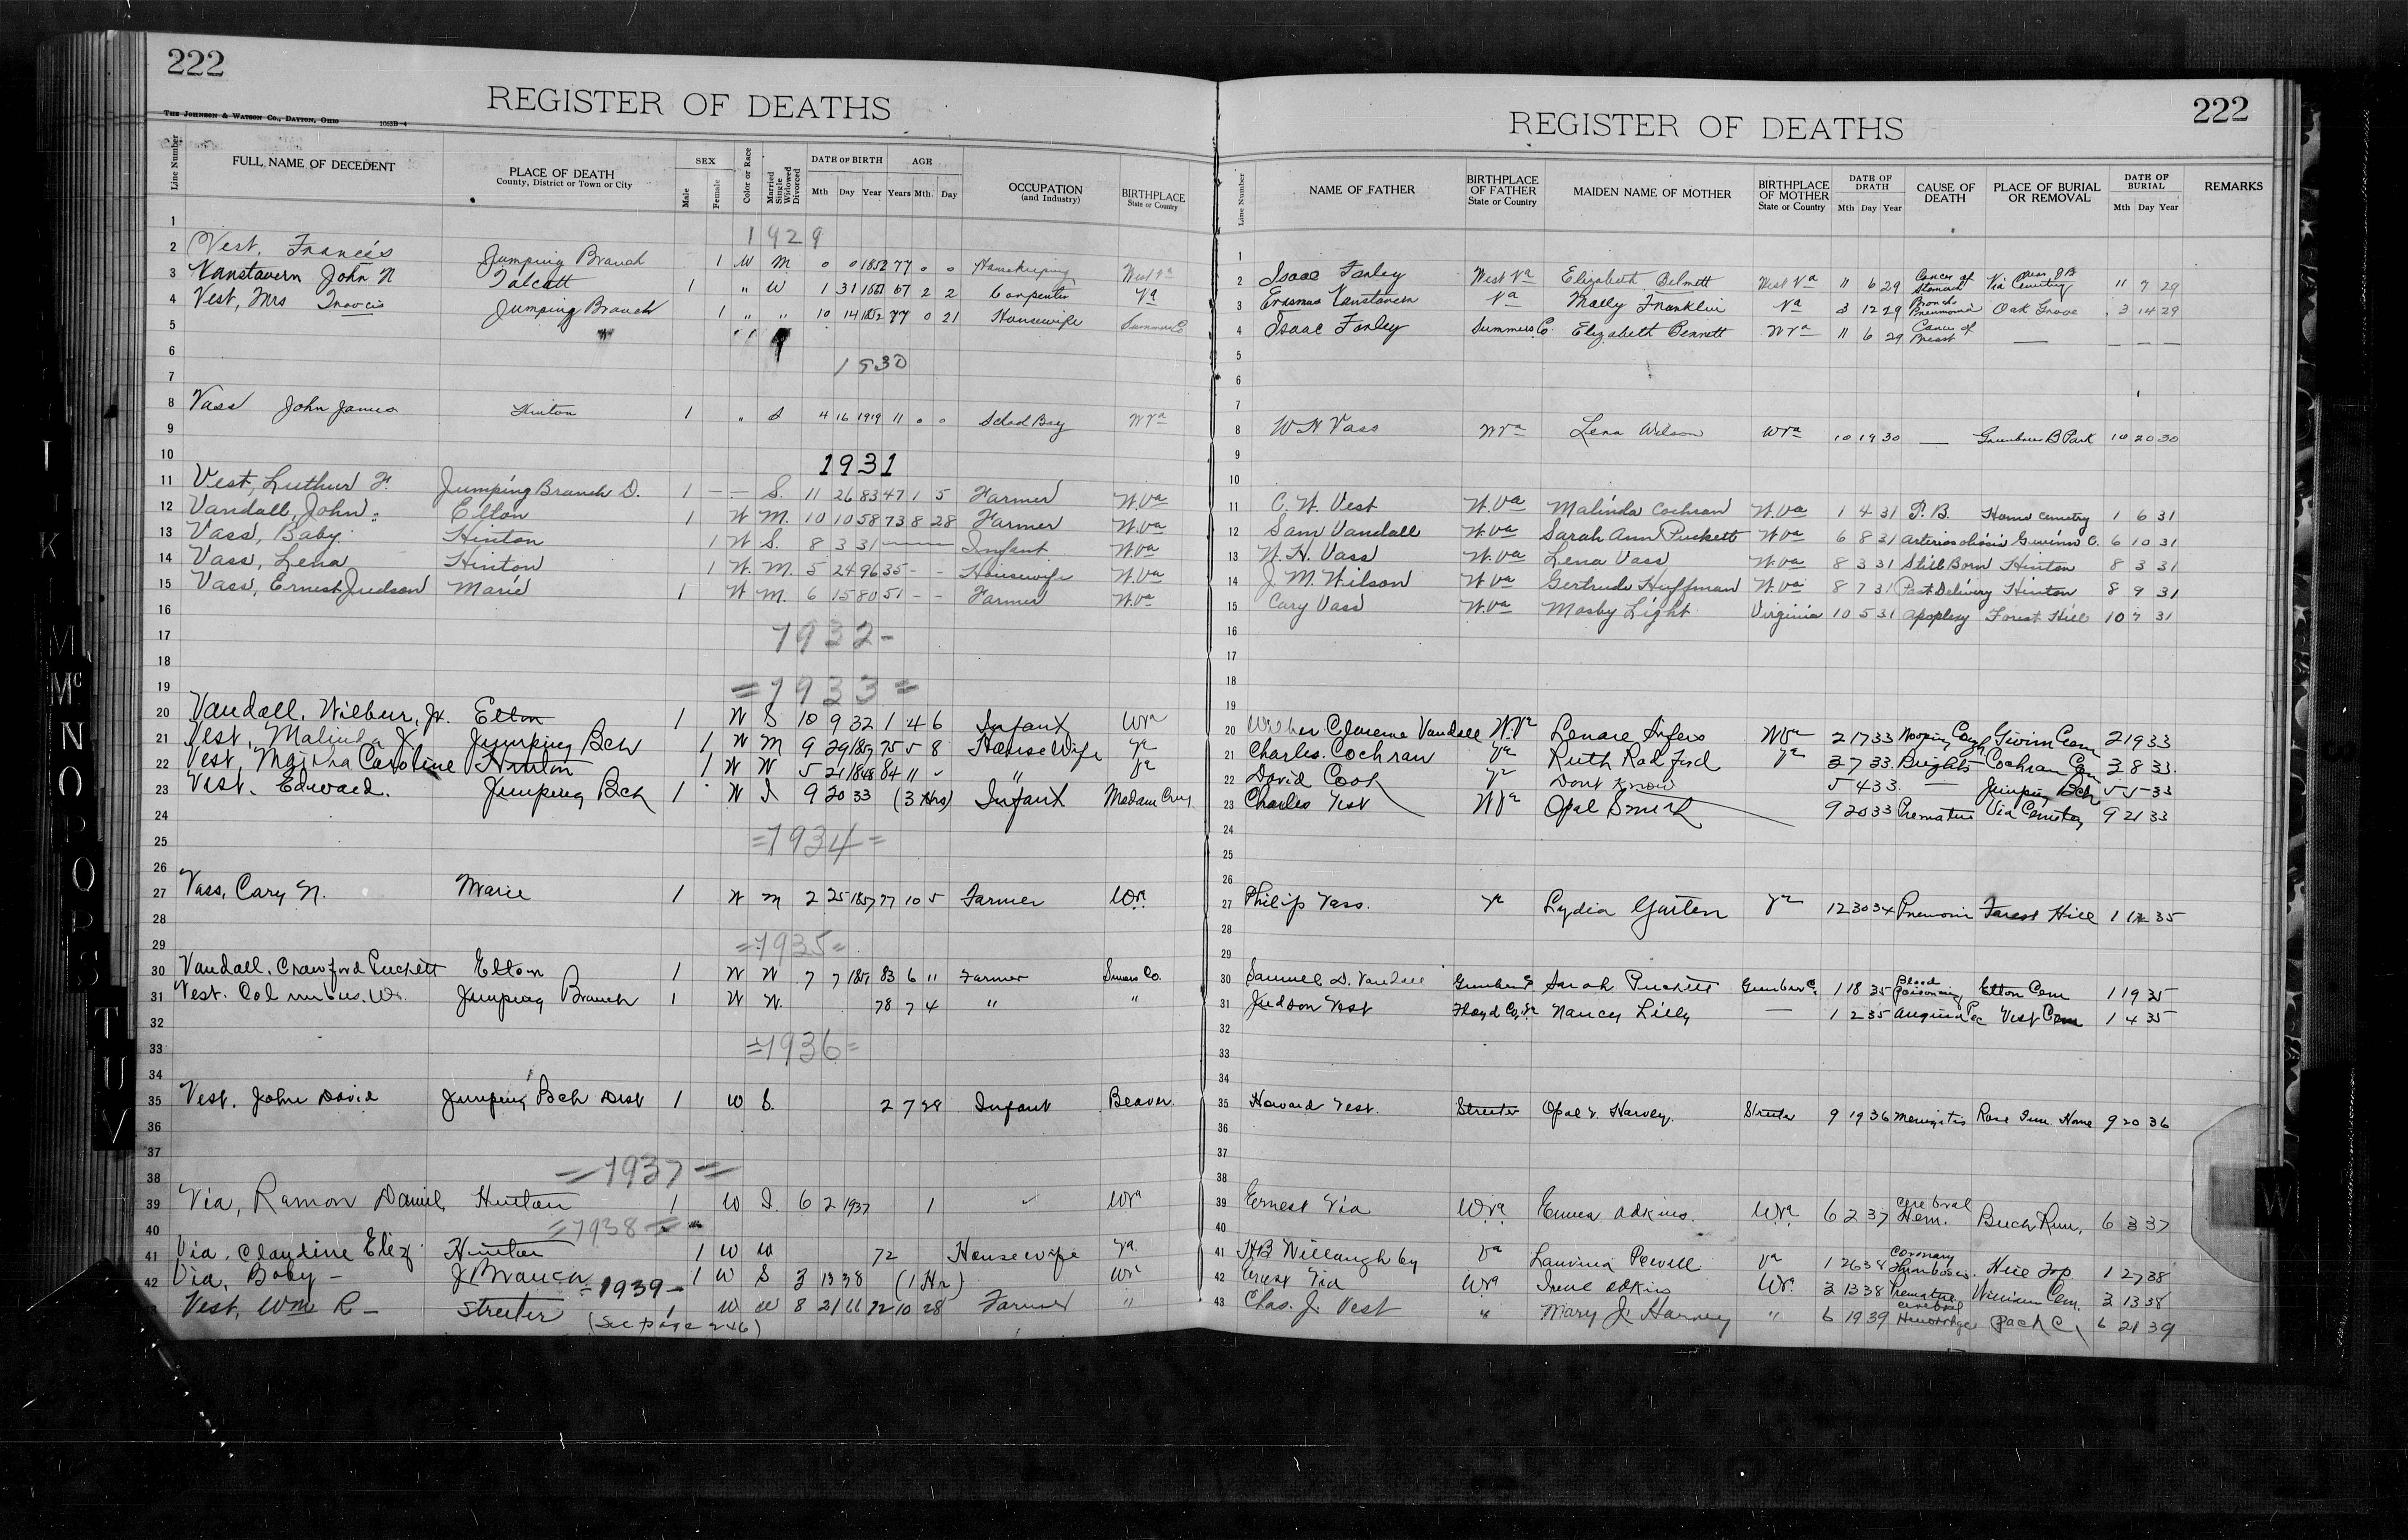 222
REGISTER OF DEATHS
THE JOHNSON & WATSON CO., DAYTON, OHIO 1063B-4
Line Number FULL NAME OF DECEDENT PLACE OF DEATH County, District or Town or City SEX Male Female Color or Race Married Single Widowed Divorced DATE OF BIRTH Mth Day Year AGE Years Mth. Day OCCUPATION (and Industry) BIRTHPLACE State or Country
1
1929
2 Vest, Francis Jumping Branch 1 W M 0 0 1852 77 0 0 Housekeeping West Va
3 Vanstavern John N Talcott 1 " W 1 31 67 2 2 Carpenter Va
4 Vest, Mrs Francis Jumping Branch 1 " " 10 14 1852 77 0 21 Housewife Summers Co
5 " " "
6
1930
7
8 Vass John James Hinton 1 " S 4 16 1919 11 0 0 School Boy W Va
9
10
1931
11 Vest, Luthur F. Jumping Branch D. 1 — — S. 11 26 83 47 1 5 Farmer W.Va
12 Vandall, John. Elton 1 W M. 10 10 58 73 8 28 Farmer W.Va
13 Vass, Baby Hinton 1 W S. 8 3 31 — — — Infant W.Va
14 Vass, Lena Hinton 1 W. M. 5 24 96 35 - - Housewife W.Va
15 Vass, Ernest Judson Marie 1 W M. 6 15 80 51 - - Farmer W.Va
16
17
1932-
18
19
=1933=
20 Vandall, Wilbur, Jr. Elton 1 W S 10 9 32 1 4 6 Infant WVa
21 Vest, Malinda J. Jumping Bch 1 W M 9 29 1857 75 5 8 House Wife Va
22 Vest, Martha Caroline Hinton 1 W W 5 21 1848 84 11 - " Va
23 Vest. Edward. Jumping Bch 1 W S 9 20 33 (3 Hrs) Infant
24
=1934=
25
26
27 Vass, Cary N. Marie 1 W M 2 25 1857 77 10 5 Farmer W.Va
28
29
=1935=
30 Vandall. Crawford Puckett Elton 1 W W 7 7 1851 83 6 11 Farmer Summers Co.
31 Vest. Columbus. W. Jumping Branch 1 W W. 78 7 4 " "
32
33
=1936=
34
35 Vest. John David Jumping Bch Dist 1 W S. 2 7 29 Infant Beaver.
36
37
=1937=
38
39 Via, Ramon Daniel Hinton 1 W S. 6 2 1937 1 " WVa
=1938=
40
41 Via. Claudine Eliz. Hinton 1 W W 72 Housewife Va.
42 Via, Baby - J Branch 1 W S 3 13 38 (1 Hr) WVa
=1939-
Vest, Wm R - Streeter 1 W W 8 21 66 72 10 28 Farmer "
(See page 246)
222
REGISTER OF DEATHS
Line Number NAME OF FATHER BIRTHPLACE OF FATHER State or Country MAIDEN NAME OF MOTHER BIRTHPLACE OF MOTHER State or Country DATE OF DEATH Mth Day Year CAUSE OF DEATH PLACE OF BURIAL OR REMOVAL DATE OF BURIAL Mth Day Year REMARKS
1
2 Isaac Farley West Va Elizabeth West Va 11 6 29 Cancer of Stomach Via Cemetery 11 7 29
3 Erasmus Vanstavern Va Mally Franklin Va 3 12 29 Broncho Pneumonia Oak Grove 3 14 29
4 Isaac Farley Summers Co. Elizabeth Bennett W Va 11 6 29 Cancer of Breast — — — —
5
6
7
8 W H Vass W Va Lena Wilson W Va 10 19 30 — Greenbrier B Park 10 20 30
9
10
11 C. W. Vest W.Va Malinda Cochran W.Va 1 4 31 T.B. Home Cemetry 1 6 31
12 Sam Vandall W.Va Sarah Ann Puckett W.Va 6 8 31 Gwinn C. 6 10 31
13 W. H. Vass W.Va Lena Vass W.Va 8 3 31 Still Born Hinton 8 3 31
14 J. M. Wilson W.Va Gertrude Huffman W.Va 8 7 31 Post Delivery Hinton 8 9 31
15 Cary Vass W.Va Mosby Light Virginia 10 5 31 Apoplexy Forest Hill 10 7 31
16
17
18
19
20 Wilber Clarence Vandall W.Va Lenare WVa 2 17 33 Gwinn Cem 2 19 33
21 Charles. Cochran Va Ruth Radford Va 3 7 33. Brights Cochran Cem 3 8 33.
22 David Cook Va Dont Know 5 4 33. — Jumping Bch 5 5 33
23 Charles Vest W Va Opal Smith 9 20 33 Premature Via Cemetery 9 21 33
24
25
26
27 Philip Vass. Va Lydia Garten Va 12 30 34 Forest Hill 1 1 35
28
29
30 Samuel D. Vandall Sarah Puckett 1 18 35 Blood Poisoning Elton Cem 1 19 35
31 Judson Vest Floyd Co, Va Nancy Lilly — 1 2 35 Vest Cem 1 4 35
32
33
34
35 Howard Vest. Streeter Opal V. Harvey. Streeter 9 19 36 9 20 36
36
37
38
39 Ernest Via W.Va. Emma Adkins. WVa. 6 2 37 Cerebral Hem. 6 3 37
40
41 H.B Willaughby Va Lauvina Powell Va 1 26 38 Coronary Thrombosis. Hill Top 1 27 38
42 Ernest Via WVa Irene Adkins WVa. 3 13 38 Premature Cem. 3 13 38
43 Chas. J. Vest " Mary J. Harvey " 6 19 39 Cerebral Hemorrhage Pack C. 6 21 39
I
K
M
Mc
N
O
P
Q
S
T
U
V
W